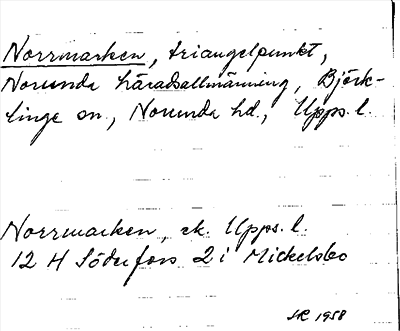 Norrmarken, triangelpunkt,
Norunda häradsallmänning, Björk-
linge sn., Norunda hd., Upps. l.
Norrmarken, ek. Upps. l.
12 H Söderfors 2 i Mickelsbo
1958